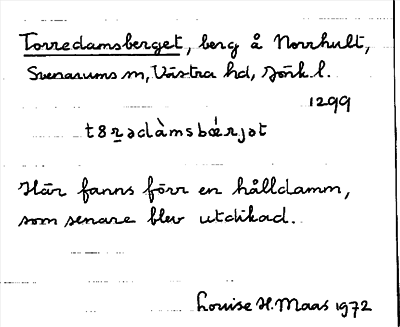 Torredamsberget, berg å Norrhult,
Svenarums sn, Västra hd, Jönk. l.
1299
t8r̲ədàmsbǽrjət
Här fanns förr en hålldamm,
som senare blev utdikad.
Louise H. Maas 1972